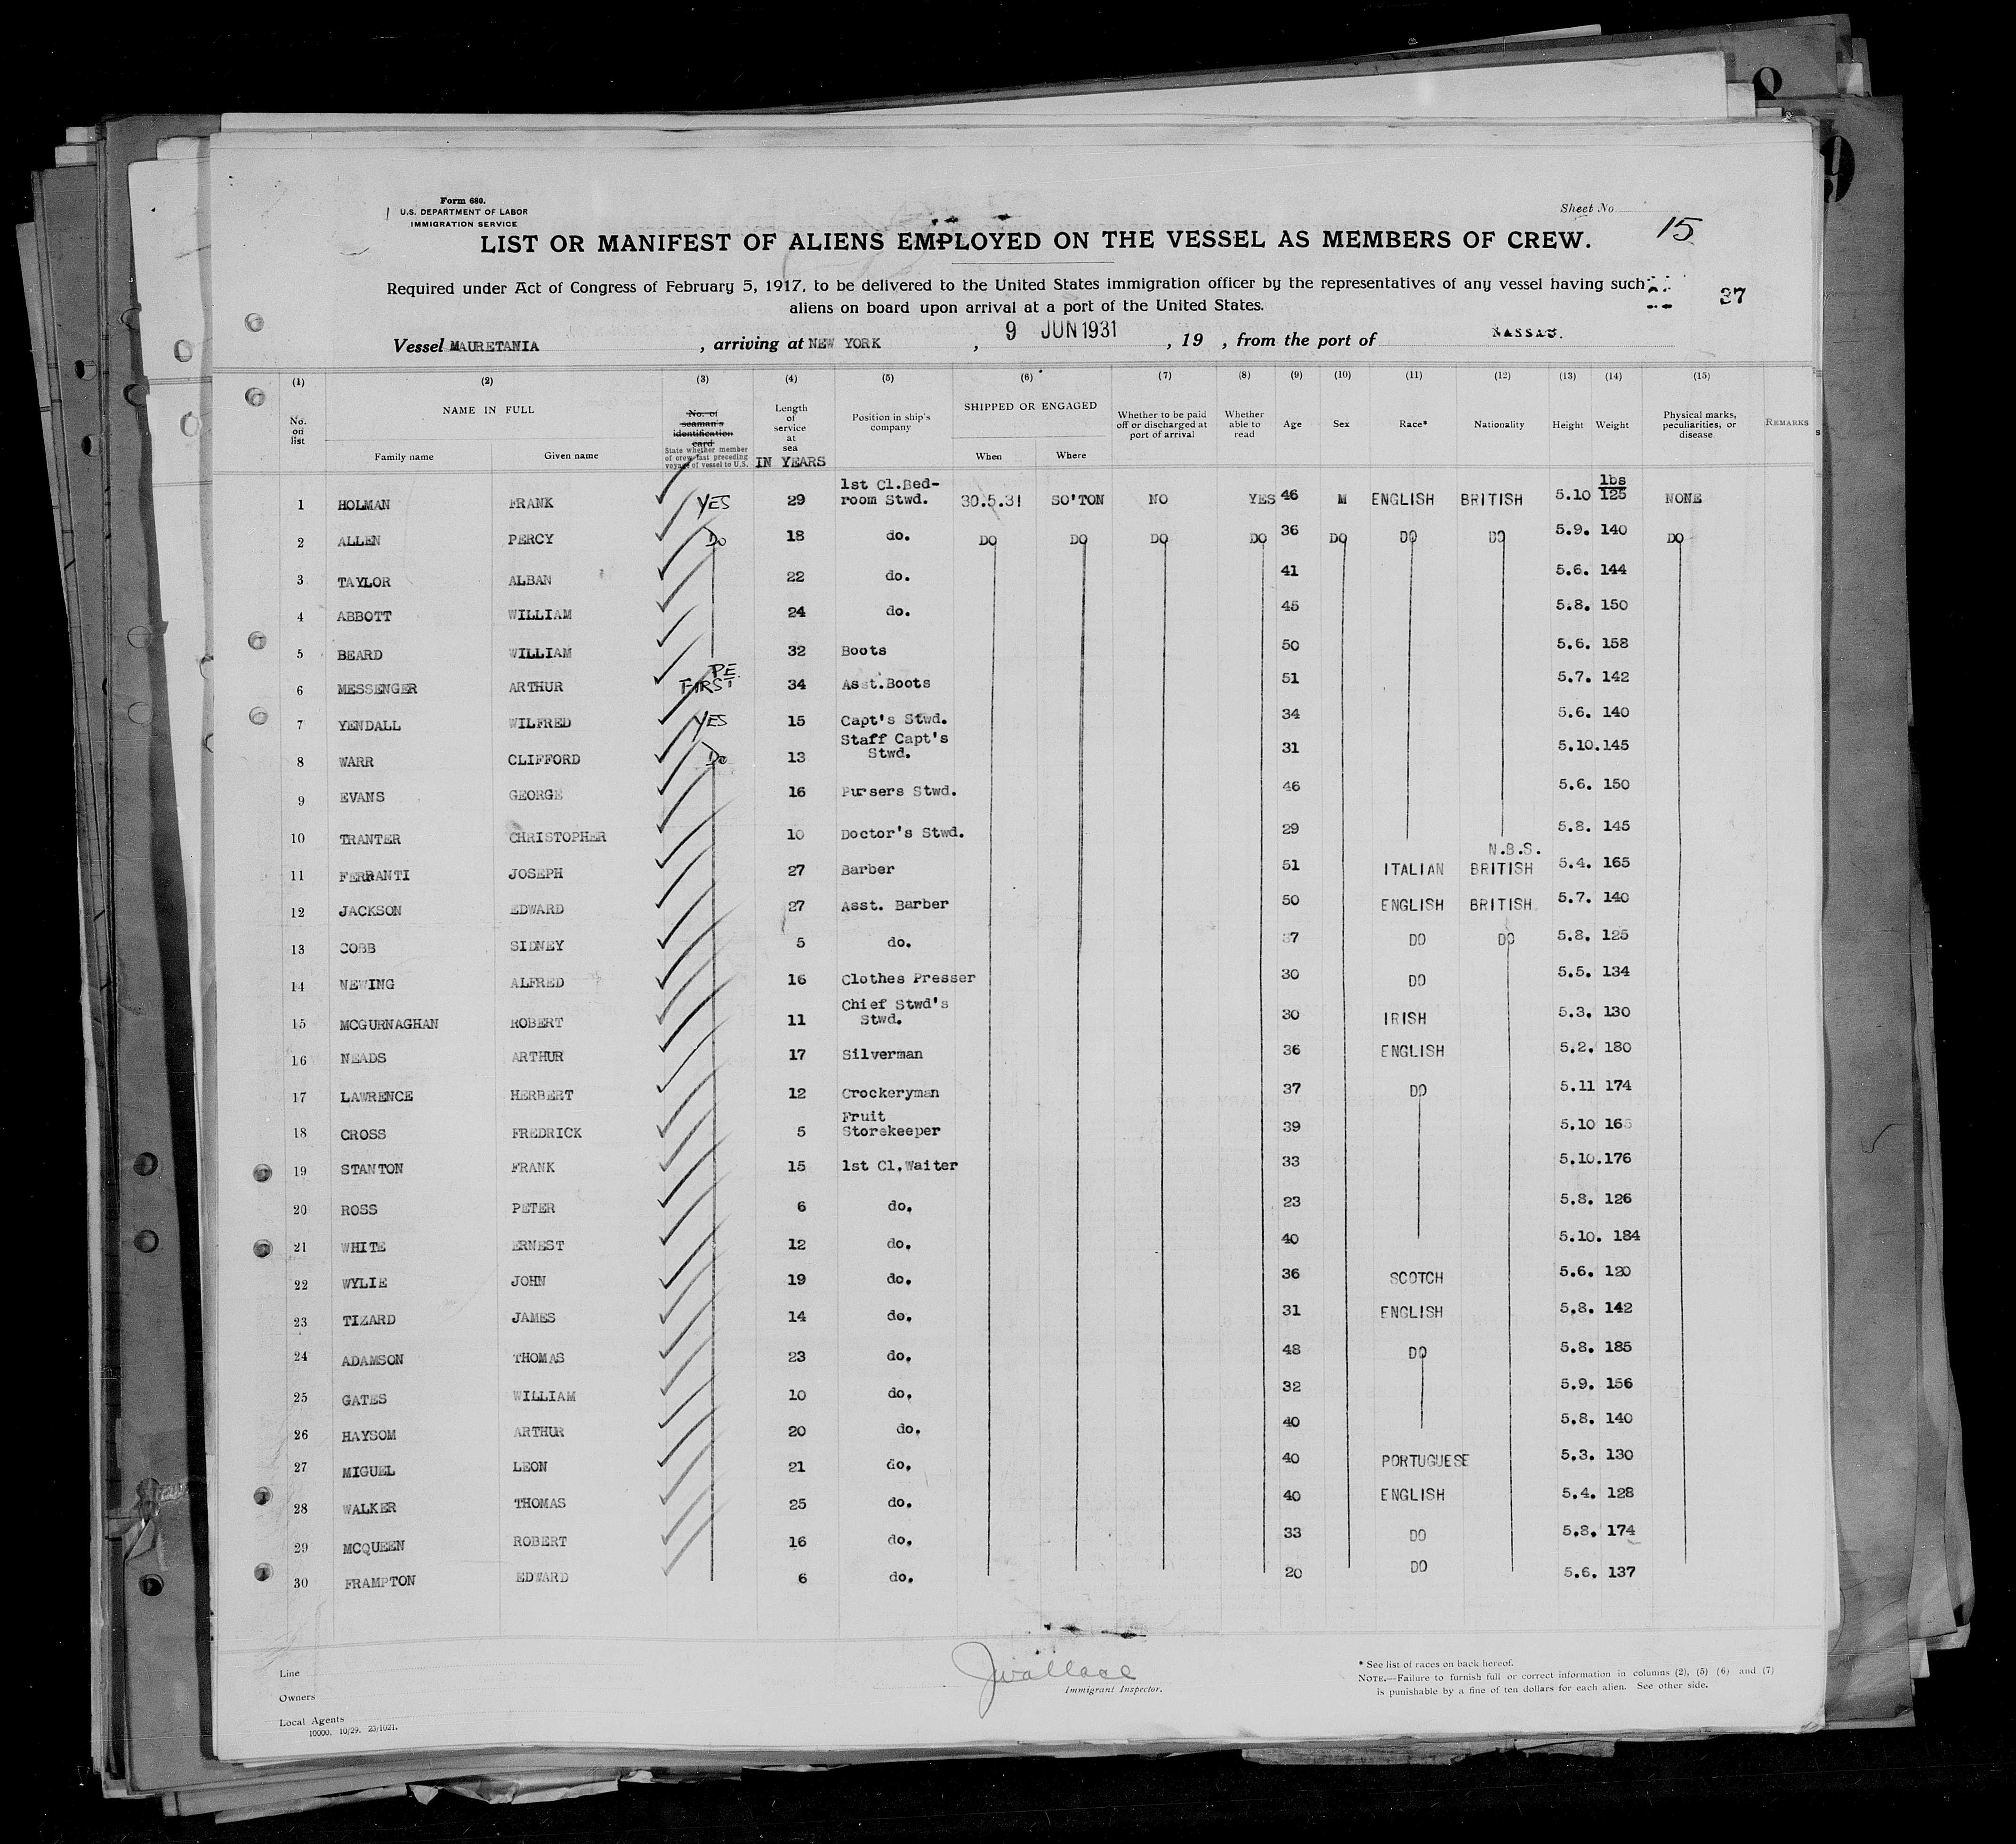 Form 680.
U.S. DEPARTMENT OF LABOR
IMMIGRATION SERVICE
Sheet No. 15
LIST OR MANIFEST OF ALIENS EMPLOYED ON THE VESSEL AS MEMBERS OF CREW.
Required under Act of Congress of February 5, 1917, to be delivered to the United States immigration officer by the representatives of any vessel having such
aliens on board upon arrival at a port of the United States.
37
Vessel MAURETANIA, arriving at NEW YORK, 9 JUN 1931, 19 , from the port of NASSAU.
(1) (2) (3) (4) (5) (6) (7) (8) (9) (10) (11) (12) (13) (14) (15)
No. on list NAME IN FULL Family name Given name No. of seaman's identification card State whether member of crew last preceding voyage of vessel to U.S. Length of service at sea IN YEARS Position in ship's company SHIPPED OR ENGAGED When Where Whether to be paid off or discharged at port of arrival Whether able to read Age Sex Race* Nationality Height Weight Physical marks, peculiarities, or disease REMARKS
1 HOLMAN FRANK YES 29 1st Cl.Bed-room Stwd. 30.5.31 SO'TON NO YES 46 M ENGLISH BRITISH 5.10 lbs 125 NONE
2 ALLEN PERCY Do 18 do. DO DO DO DO 36 DO DO DO 5.9. 140 DO
3 TAYLOR ALBAN 22 do. 41 5.6. 144
4 ABBOTT WILLIAM 24 do. 45 5.8. 150
5 BEARD WILLIAM 32 Boots 50 5.6. 158
6 MESSENGER ARTHUR P.E. FIRST 34 Asst.Boots 51 5.7. 142
7 YENDALL WILFRED YES 15 Capt's Stwd. 34 5.6. 140
8 WARR CLIFFORD Do 13 Staff Capt's Stwd. 31 5.10. 145
9 EVANS GEORGE 16 Pursers Stwd. 46 5.6. 150
10 TRANTER CHRISTOPHER 10 Doctor's Stwd. 29 5.8. 145
11 FERRANTI JOSEPH 27 Barber 51 ITALIAN N.B.S. BRITISH 5.4. 165
12 JACKSON EDWARD 27 Asst. Barber 50 ENGLISH BRITISH 5.7. 140
13 COBB SIDNEY 5 do. 37 DO DO 5.8. 125
14 NEWING ALFRED 16 Clothes Presser 30 DO 5.5. 134
15 MCGURNAGHAN ROBERT 11 Chief Stwd's Stwd. 30 IRISH 5.3. 130
16 NEADS ARTHUR 17 Silverman 36 ENGLISH 5.2. 180
17 LAWRENCE HERBERT 12 Crockeryman 37 DO 5.11 174
18 CROSS FREDRICK 5 Fruit Storekeeper 39 5.10 165
19 STANTON FRANK 15 1st Cl.Waiter 33 5.10. 176
20 ROSS PETER 6 do. 23 5.8. 126
21 WHITE ERNEST 12 do. 40 5.10. 184
22 WYLIE JOHN 19 do. 36 SCOTCH 5.6. 120
23 TIZARD JAMES 14 do. 31 ENGLISH 5.8. 142
24 ADAMSON THOMAS 23 do. 48 DO 5.8. 185
25 GATES WILLIAM 10 do. 32 5.9. 156
26 HAYSOM ARTHUR 20 do. 40 5.8. 140
27 MIGUEL LEON 21 do. 40 PORTUGUESE 5.3. 130
28 WALKER THOMAS 25 do. 40 ENGLISH 5.4. 128
29 MCQUEEN ROBERT 16 do. 33 DO 5.8. 174
30 FRAMPTON EDWARD 6 do. 20 DO 5.6. 137
Line
Owners
Local Agents
10000. 10/29. 23/1021.
JWallace
Immigrant Inspector.
* See list of races on back hereof.
NOTE.—Failure to furnish full or correct information in columns (2), (5) (6) and (7)
is punishable by a fine of ten dollars for each alien. See other side.